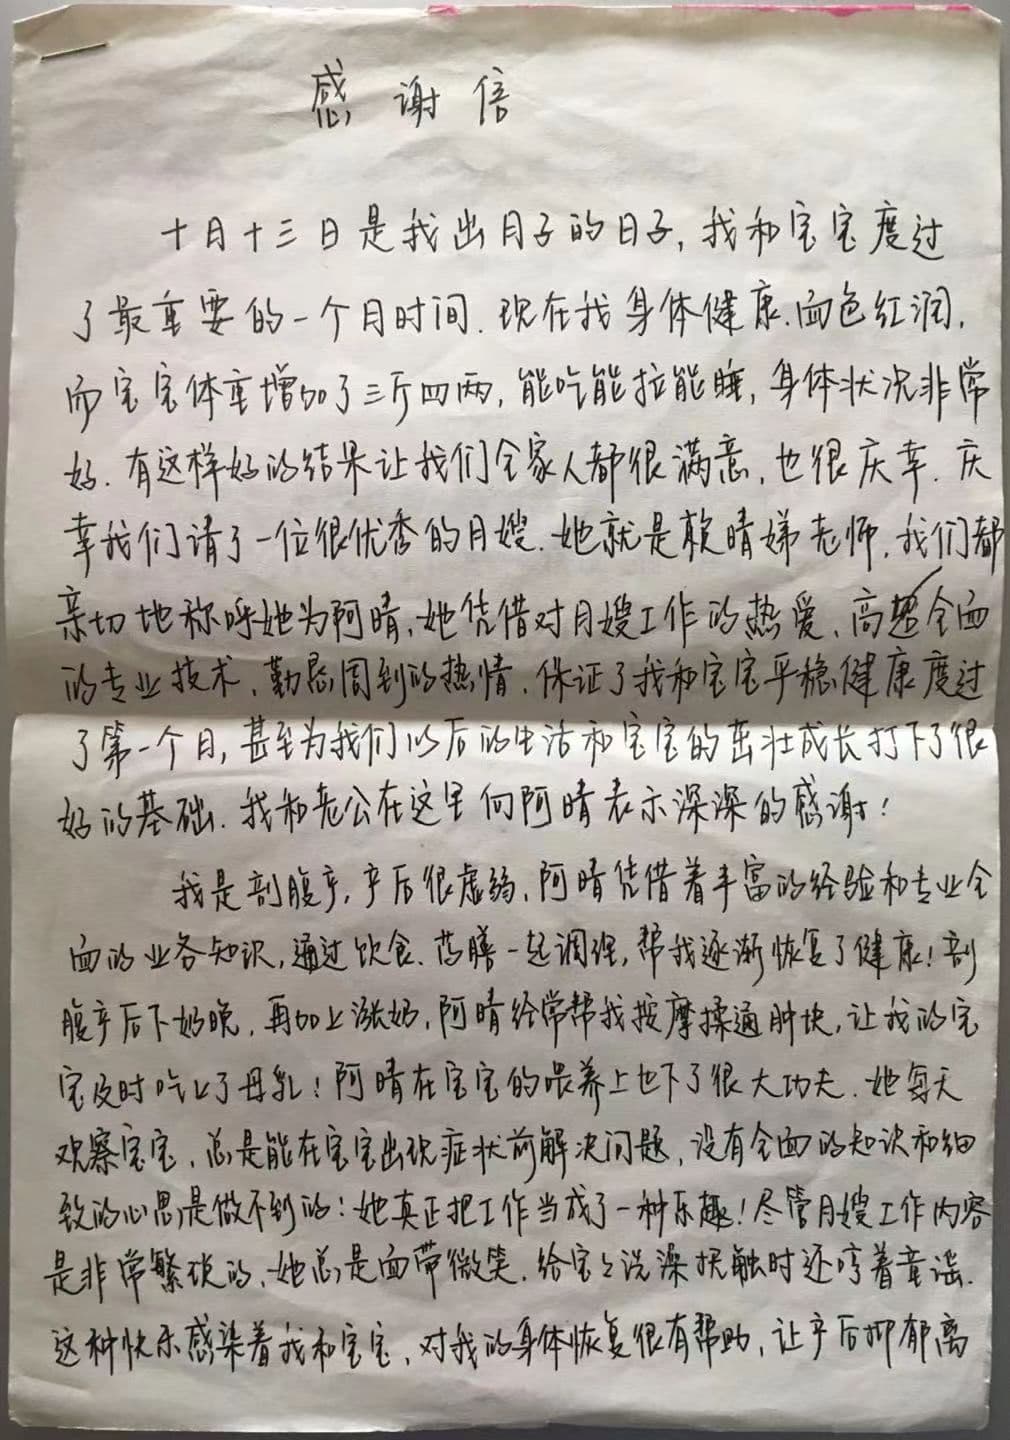 感谢信
十月十三日是我出月子的日子,我和宝宝度过
了最重要的一个月时间.现在我身体健康.面色红润,
而宝宝体重增加了三斤四两,能吃能拉能睡,身体状况非常
好.有这样好的结果让我们全家人都很满意,也很庆幸.庆
幸我们请了一位很优秀的月嫂.她就是赖晴娣老师,我们都
亲切地称呼她为阿晴,她凭借对月嫂工作的热爱、高超全面
的专业技术、勤恳周到的热情,保证了我和宝宝平稳健康度过
了第一个月,甚至为我们以后的生活和宝宝的茁壮成长打下了很
好的基础.我和老公在这里向阿晴表示深深的感谢!
我是剖腹产,产后很虚弱,阿晴凭借着丰富的经验和专业全
面的业务知识,通过饮食、药膳一起调理,帮我逐渐恢复了健康!剖
腹产后下奶晚,再加上涨奶,阿晴经常帮我按摩揉通肿块,让我的宝
宝及时吃上了母乳!阿晴在宝宝的喂养上也下了很大功夫.她每天
观察宝宝,总是能在宝宝出现症状前解决问题,没有全面的知识和细
致的心思是做不到的!她真正把工作当成了一种乐趣!尽管月嫂工作内容
是非常繁琐的,她总是面带微笑.给宝々洗澡抚触时还哼着童谣.
这种快乐感染着我和宝宝,对我的身体恢复很有帮助,让产后抑郁离